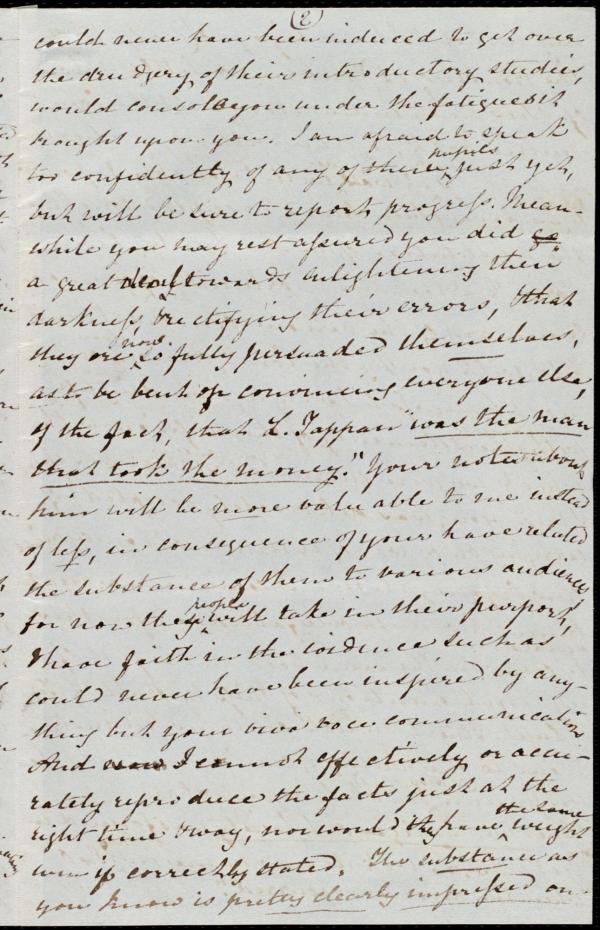 (2)
could never have been induced to get over
the drudgery of their introductory studies,
would console you under the fatigues it
brought upon you. I am afraid to speak
too confidently of any of these pupils just yet,
but will be sure to report progress. Mean-
while you may rest assured you did go
a great deal towards enlightening their
darkness, & rectifying their errors, & that
they are now so fully persuaded themselves,
as to be bent on convincing everyone else,
of the fact, that L. Tappan "was the man
that took the money." Your notes about
him will be more valuable to me instead
of less, in consequence of your have related
the substance of them to various audiences
for now the people will take in their purport,
& have faith in the evidence such as
could never have been inspired by any-
thing but your viva voce communications
And now I cannot effectively or accu-
rately reproduce the facts just at the
right time & way, nor would they have the same weight
even if correctly stated. The substance as
you know is pretty clearly impressed on